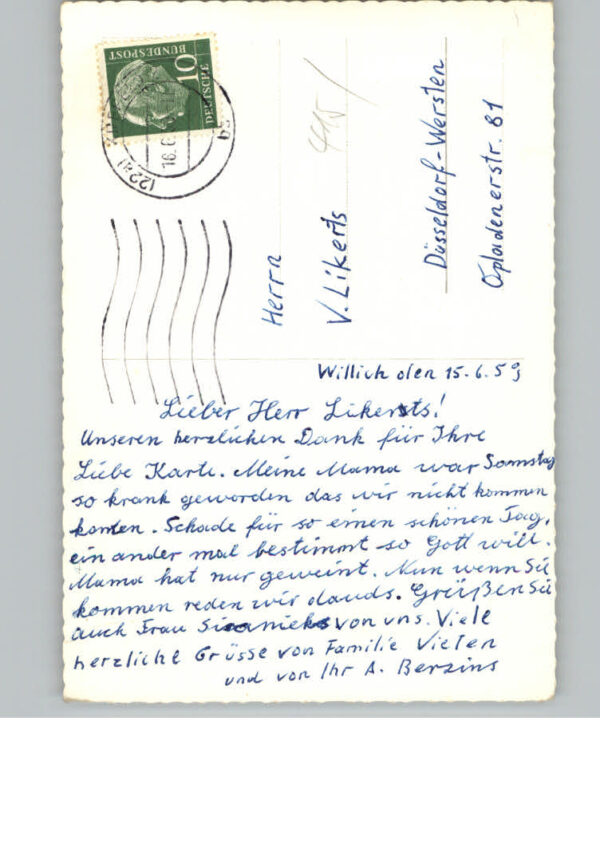 DEUTSCHE
BUNDESPOST
10
(22a)
16.6.
Herrn
V. Likerts
Düsseldorf-Wersten
Opladenerstr. 81
Willich den 15.6.59
Lieber Herr Likersts!
Unseren herzlichen Dank für Ihre
Liebe Karte. Meine Mama war Samstag
so krank geworden das wir nicht kommen
konten. Schade für so einen schönen Tag,
ein ander mal bestimmt so Gott will.
Mama hat nur geweint. Nun wenn Sie
kommen reden wir . Grüßen Sie
auch Frau von uns. Viele
herzliche Grüsse von Familie Vielen
und von Ihr A. Berzins